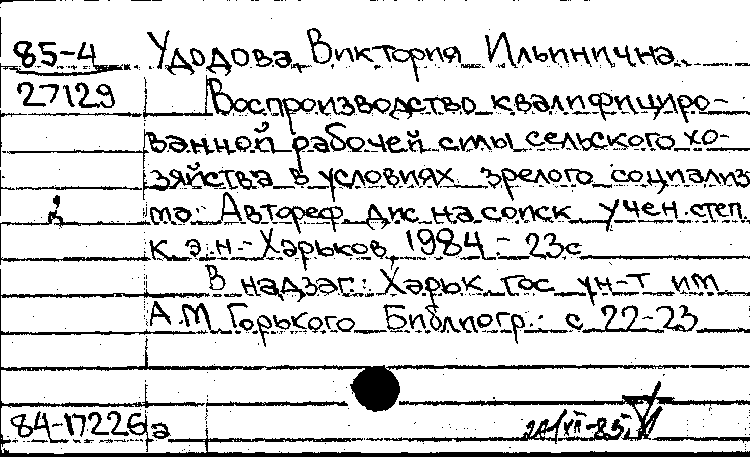 85-4 Удодова, Виктория Ильинична.
27129 Воспроизводство квалифициро-
ванной рабочей силы сельского хо-
зяйства в условиях зрелого социализ
ма: Автореф. дис на соиск. учен. степ.
к. э. н. - Харьков, 1984. - 23с
В надзаг.: Харьк. гос. ун-т им
А.М. Горького Библиогр.: с 22-23
84-17226а